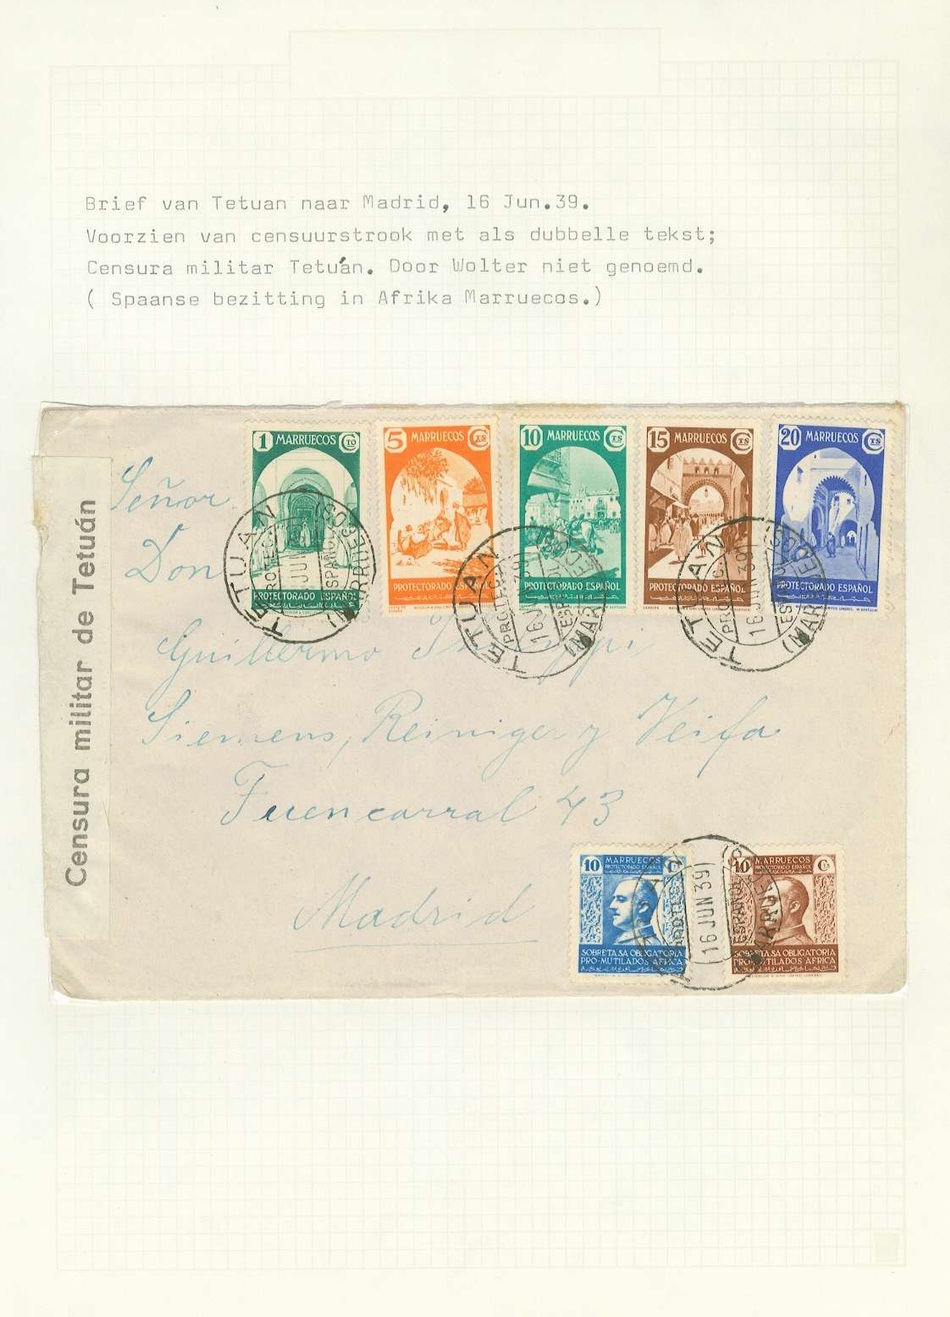 Brief van Tetuan naar Madrid, 16 Jun.39.
Voorzien van censuurstrook met als dubbelle tekst;
Censura militar Tetuán. Door Wolter niet genoemd.
( Spaanse bezitting in Afrika Marruecos.)
1 MARRUECOS CTO
PROTECTORADO ESPAÑOL
5 MARRUECOS CTS
PROTECTORADO ESPAÑOL
10 MARRUECOS CTS
PROTECTORADO ESPAÑOL
15 MARRUECOS CTS
PROTECTORADO ESPAÑOL
20 MARRUECOS CTS
PROTECTORADO ESPAÑOL
TETUAN
JUN
TETUAN
16 JUN 39
TETUAN
16 JUN 39
Censura militar de Tetuán
Señor
Don
Guillermo
Siemens, Reiniger y Veifa
Fuencarral 43
Madrid
10 MARRUECOS
PROTECTORADO ESPAÑOL
SOBRETASA OBLIGATORIA
PRO-MUTILADOS AFRICA
10 MARRUECOS Cs
PROTECTORADO ESPAÑOL
SOBRETASA OBLIGATORIA
PRO-MUTILADOS AFRICA
16 JUN 39